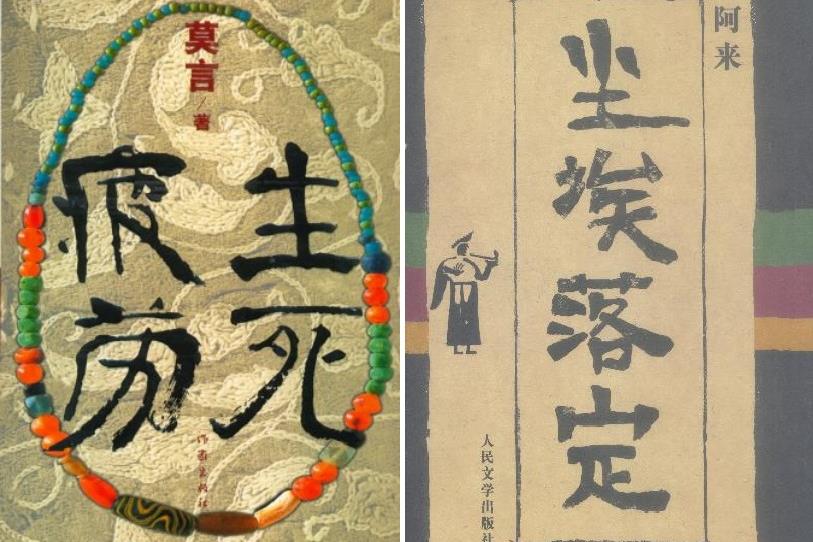 莫言/著
生死
疲劳
作家出版社
阿来
尘埃落定
人民文学出版社